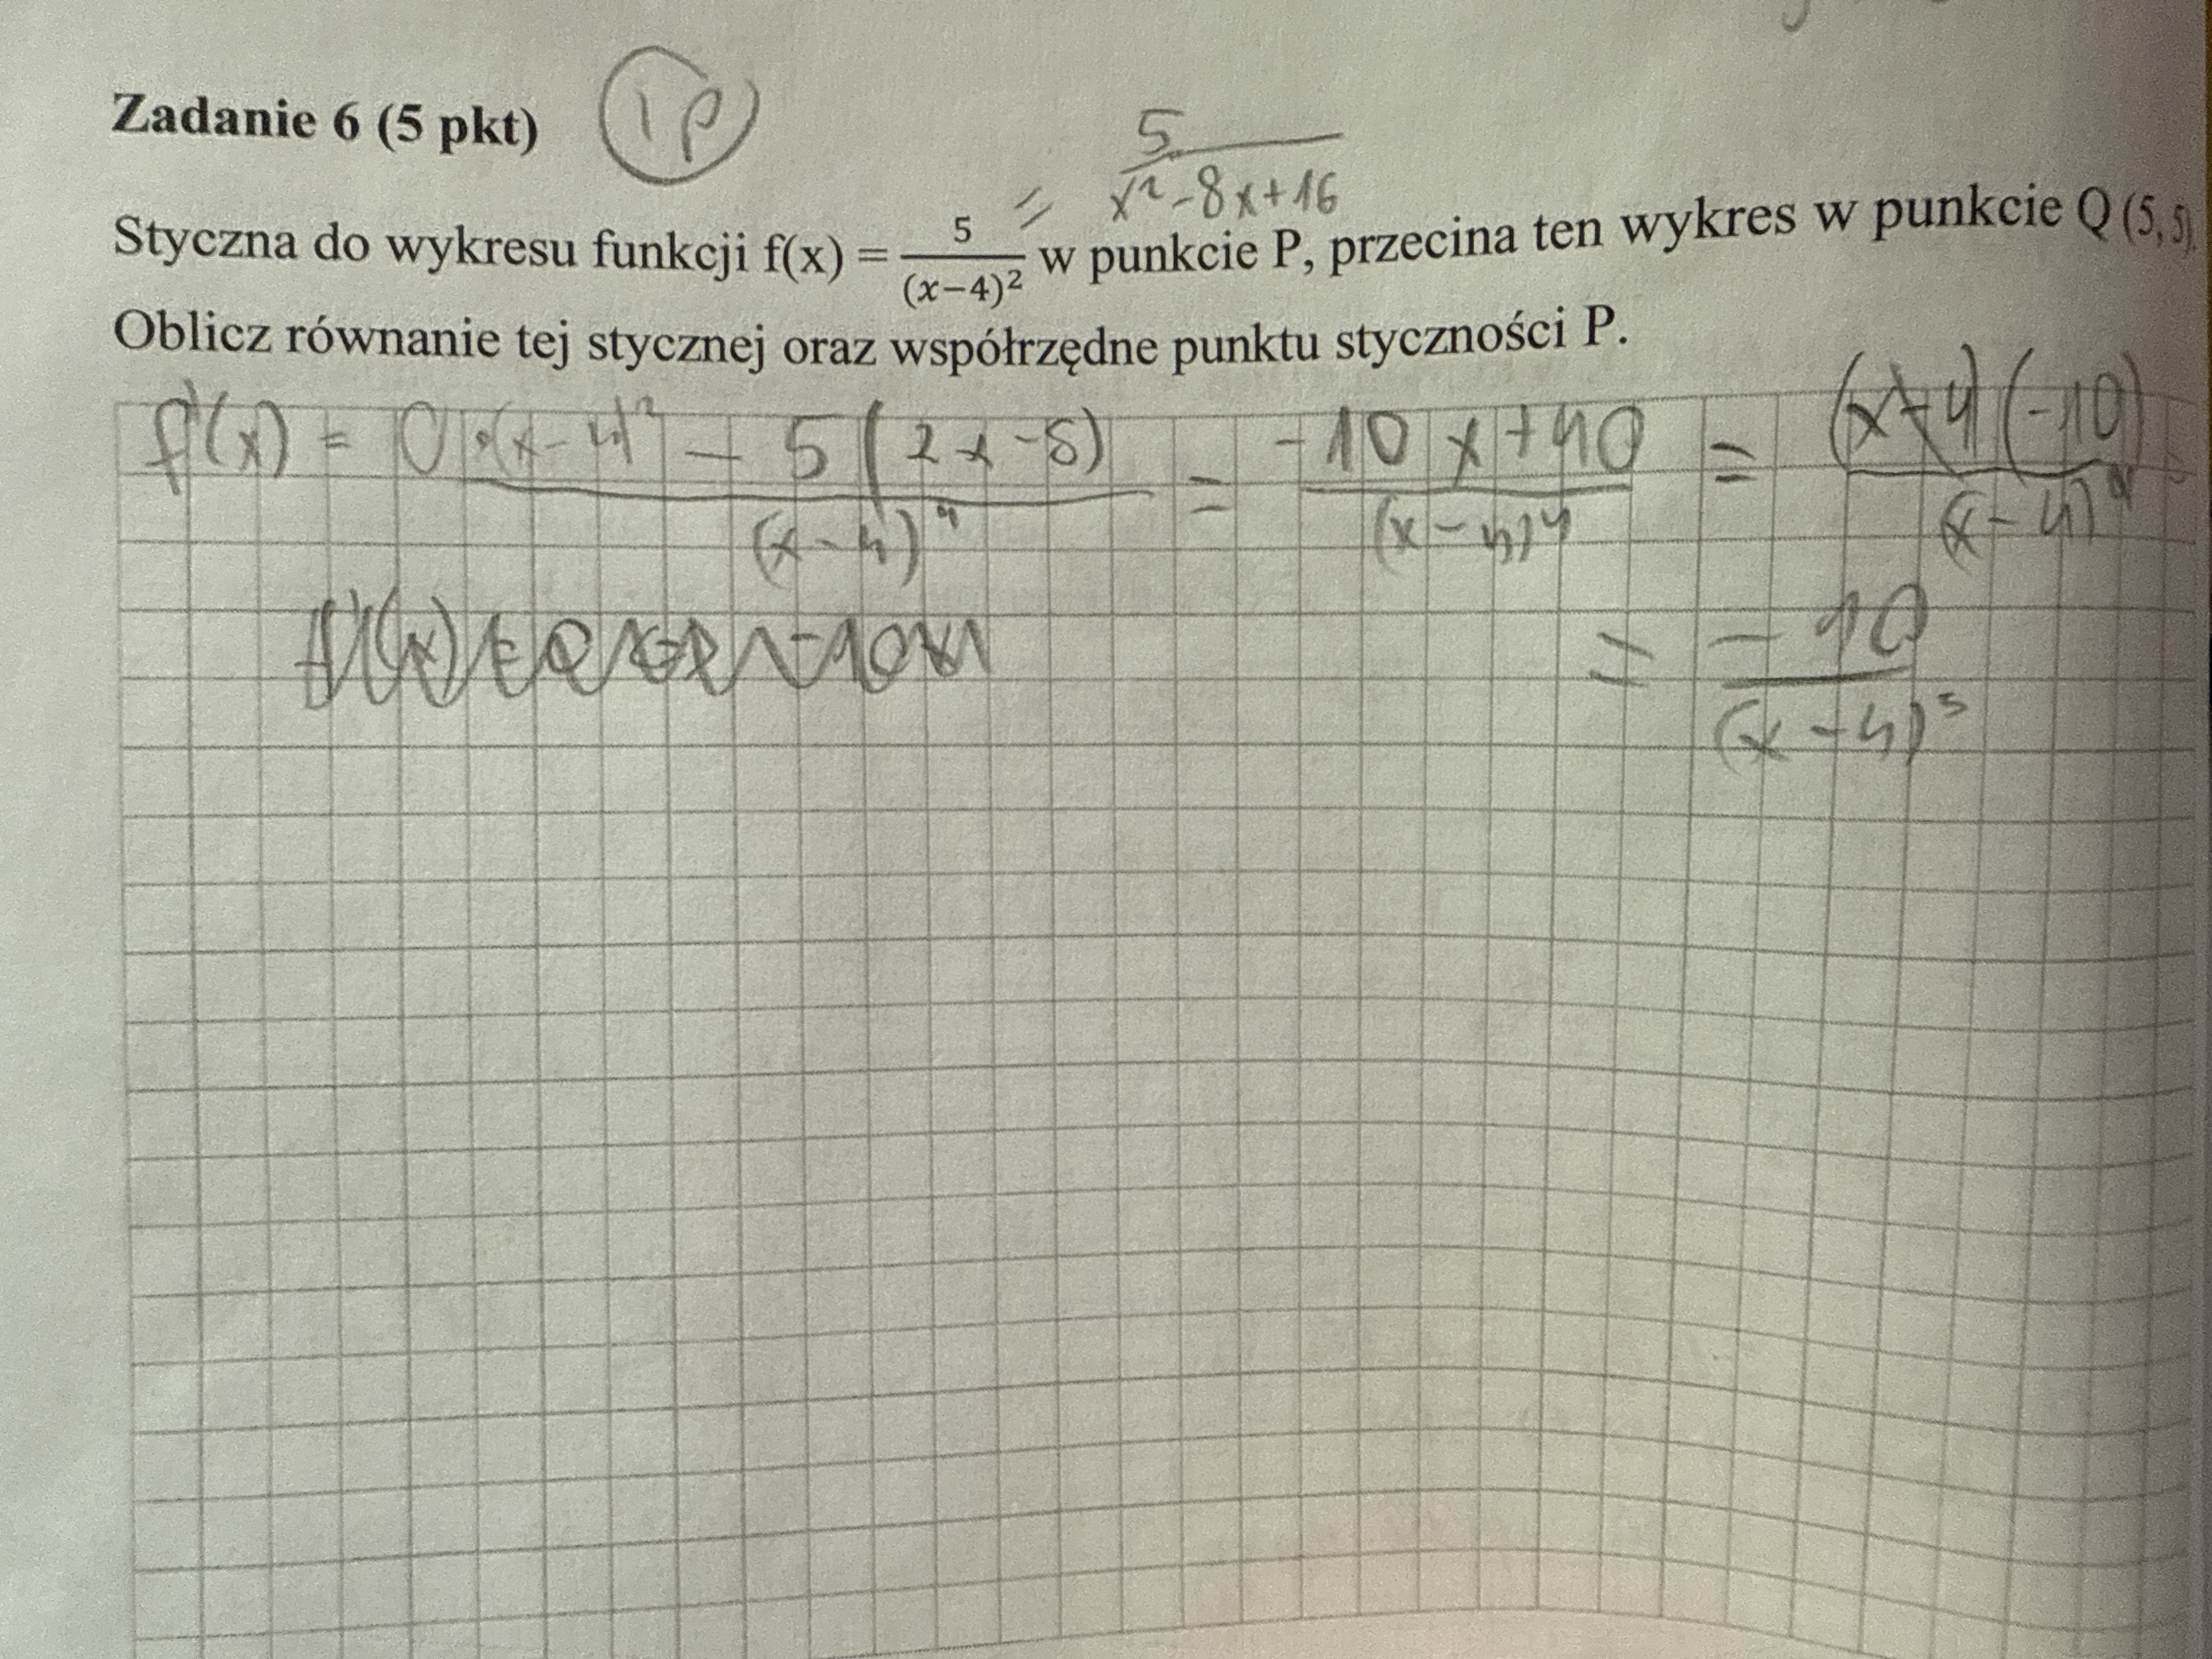 Zadanie 6 (5 pkt) 1p
= 5/(x²-8x+16)
Styczna do wykresu funkcji f(x) = 5/(x−4)² w punkcie P, przecina ten wykres w punkcie Q (5, 5).
Oblicz równanie tej stycznej oraz współrzędne punktu styczności P.
f'(x) = (0·(x-4)² - 5(2x-8))/(x-4)⁴ = (-10x+40)/(x-4)⁴ = (x-4)(-10)/(x-4)⁴ =
= -10/(x-4)³